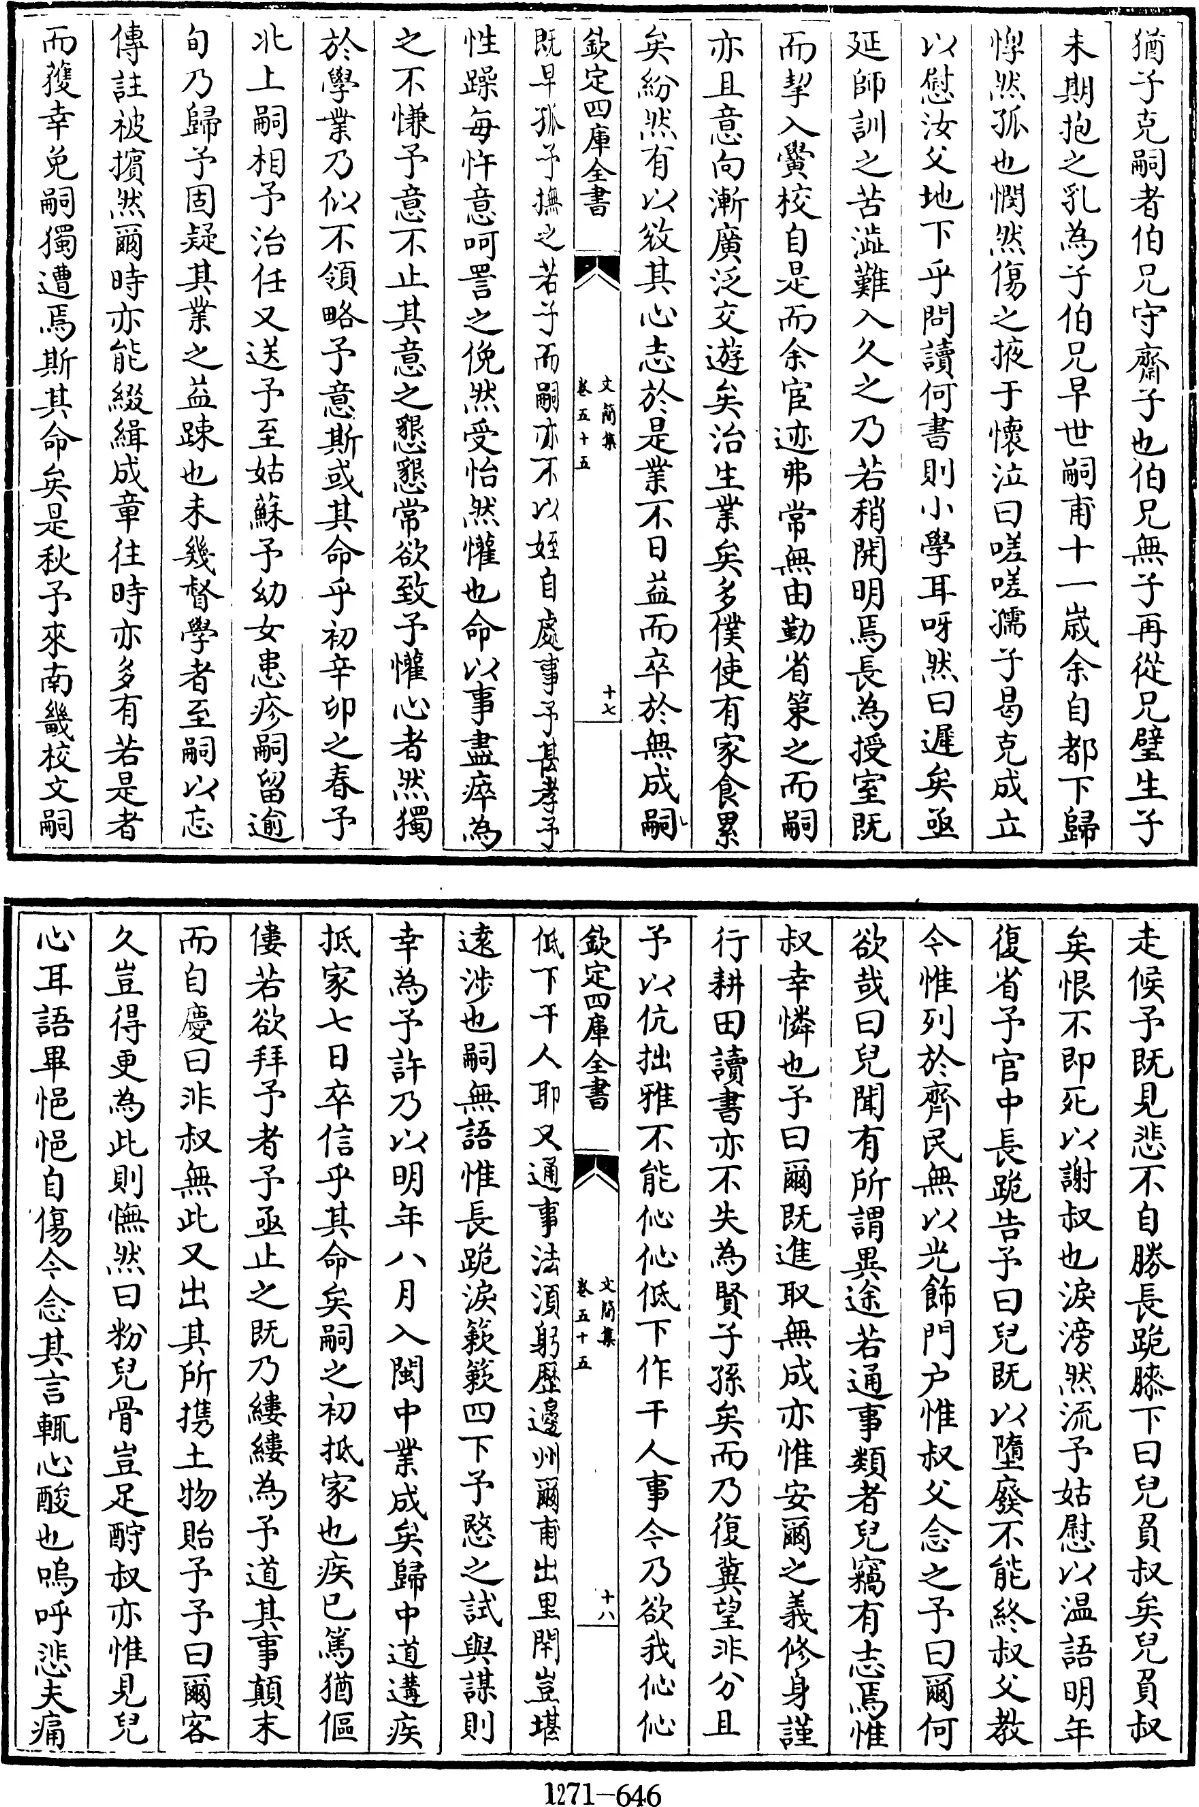 猶子克嗣者伯兄守齋子也伯兄無子再從兄璧生子
未期抱之乳為子伯兄早世嗣甫十一歲余自都下歸
悼然孤也憫然傷之掖于懷泣曰嗟嗟孺子曷克成立
以慰汝父地下乎問讀何書則小學耳呀然曰遲矣亟
延師訓之苦澁難入久之乃若稍開明焉長為授室既
而挈入黌校自是而余宦迹弗常無由勤省策之而嗣
亦且意向漸廣泛交遊矣治生業矣多僕使有家食累
矣紛然有以敚其心志於是業不日益而卒於無成嗣
欽定四庫全書
文簡集
卷五十五
十七
既早孤予撫之若子而嗣亦不以姪自處事予甚孝予
性躁每忤意呵詈之俛然受怡然懽也命以事盡瘁為
之不慊予意不止其意之懇懇常欲致予懽心者然獨
於學業乃似不領略予意斯或其命乎初辛卯之春予
北上嗣相予治任又送予至姑蘇予幼女患疹嗣留逾
旬乃歸予固疑其業之益踈也未幾督學者至嗣以忘
傳註被擯然爾時亦能綴緝成章往時亦多有若是者
而獲幸免嗣獨遭焉斯其命矣是秋予來南畿校文嗣
走候予既見悲不自勝長跪膝下曰兒負叔矣兒負叔
矣恨不即死以謝叔也淚滂然流予姑慰以温語明年
復省予官中長跪告予曰兒既以墮廢不能終叔父教
令惟列於齊民無以光飾門户惟叔父念之予曰爾何
欲哉曰兒聞有所謂異途若通事類者兒竊有志焉惟
叔幸憐也予曰爾既進取無成亦惟安爾之義修身謹
行耕田讀書亦不失為賢子孫矣而乃復冀望非分且
予以伉拙雅不能伈伈低下作干人事今乃欲我伈伈
欽定四庫全書
文簡集
卷五十五
十八
低下干人耶又通事法須躬歷邊州爾甫出里閈豈堪
遠涉也嗣無語惟長跪淚簌簌四下予愍之試與謀則
幸為予許乃以明年八月入閩中業成矣歸中道遘疾
抵家七日卒信乎其命矣嗣之初抵家也疾已篤猶傴
僂若欲拜予者予亟止之既乃縷縷為予道其事顛末
而自慶曰非叔無此又出其所携土物貽予予曰爾客
久豈得更為此則憮然曰粉兒骨豈足酧叔亦惟見兒
心耳語畢悒悒自傷今念其言輒心酸也嗚呼悲夫痛
1271—646